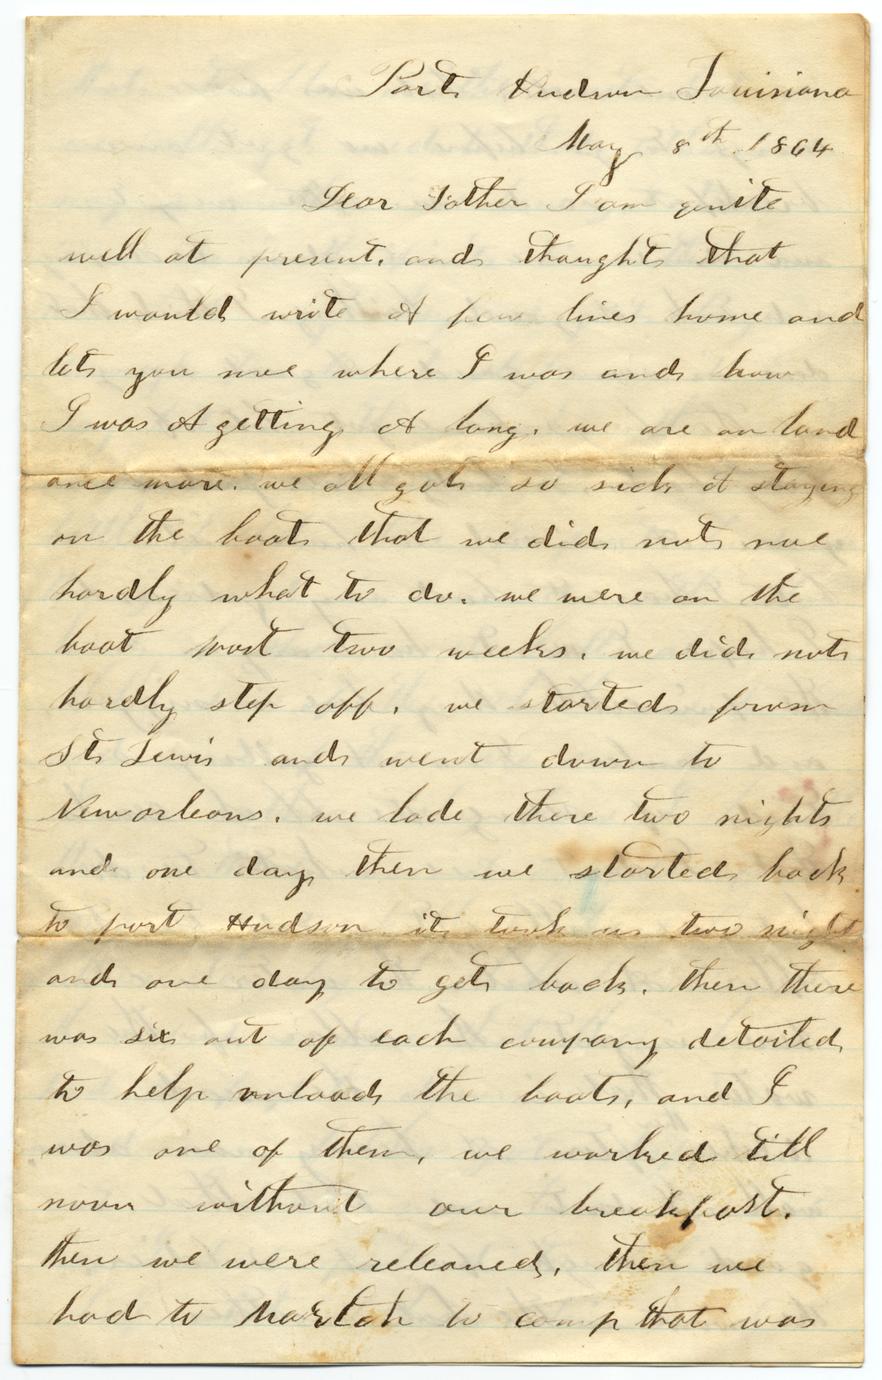 Port Hudson Louisiana
May 8th 1864
Dear Father I am quite
well at present. and thought that
I would write A few lines home and
let you noe where I was and how
I was A getting A long. we are on land
once more. we all got so sick of staying
on the boat that we did not noe
hardly what to do. we were on the
boat most two weeks. we did not
hardly step off. we started from
St Lewis and went down to
Neworleans. we lade there two nights
and one day then we started back
to port Hudson it took us two night
and one day to get back. then there
was six out of each company detailed
to help unload the boats, and I
was one of them, we worked till
noon without our breakfast.
then we were released, then we
had to March to camp that was